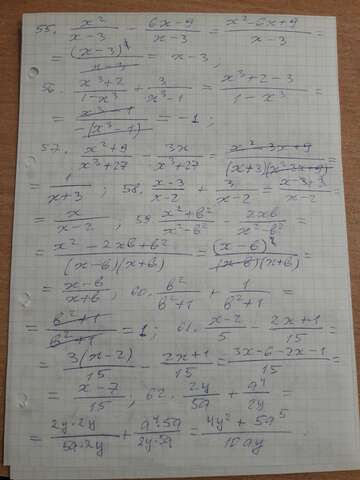 55. x²/(x-3) - (6x-9)/(x-3) = (x²-6x+9)/(x-3) =
= (x-3)²/(x-3) = x-3;
56. (x³+2)/(1-x³) + 3/(x³-1) = (x³+2-3)/(1-x³) =
= (x³-1)/(-(x³-1)) = -1;
57. (x²+9)/(x³+27) - 3x/(x³+27) = (x²-3x+9)/((x+3)(x²-3x+9)) =
= 1/(x+3); 58. (x-3)/(x-2) + 3/(x-2) = (x-3+3)/(x-2) =
= x/(x-2); 59. (x²+b²)/(x²-b²) - 2xb/(x²-b²) =
= (x²-2xb+b²)/((x-b)(x+b)) = (x-b)²/((x-b)(x+b)) =
= (x-b)/(x+b); 60. b²/(b²+1) + 1/(b²+1) =
= (b²+1)/(b²+1) = 1; 61. (x-2)/5 - (2x+1)/15 =
= 3(x-2)/15 - (2x+1)/15 = (3x-6-2x-1)/15 =
= (x-7)/15; 62. 2y/5a + a⁴/2y =
= (2y·2y)/(5a·2y) + (a⁴·5a)/(2y·5a) = (4y²+5a⁵)/10ay